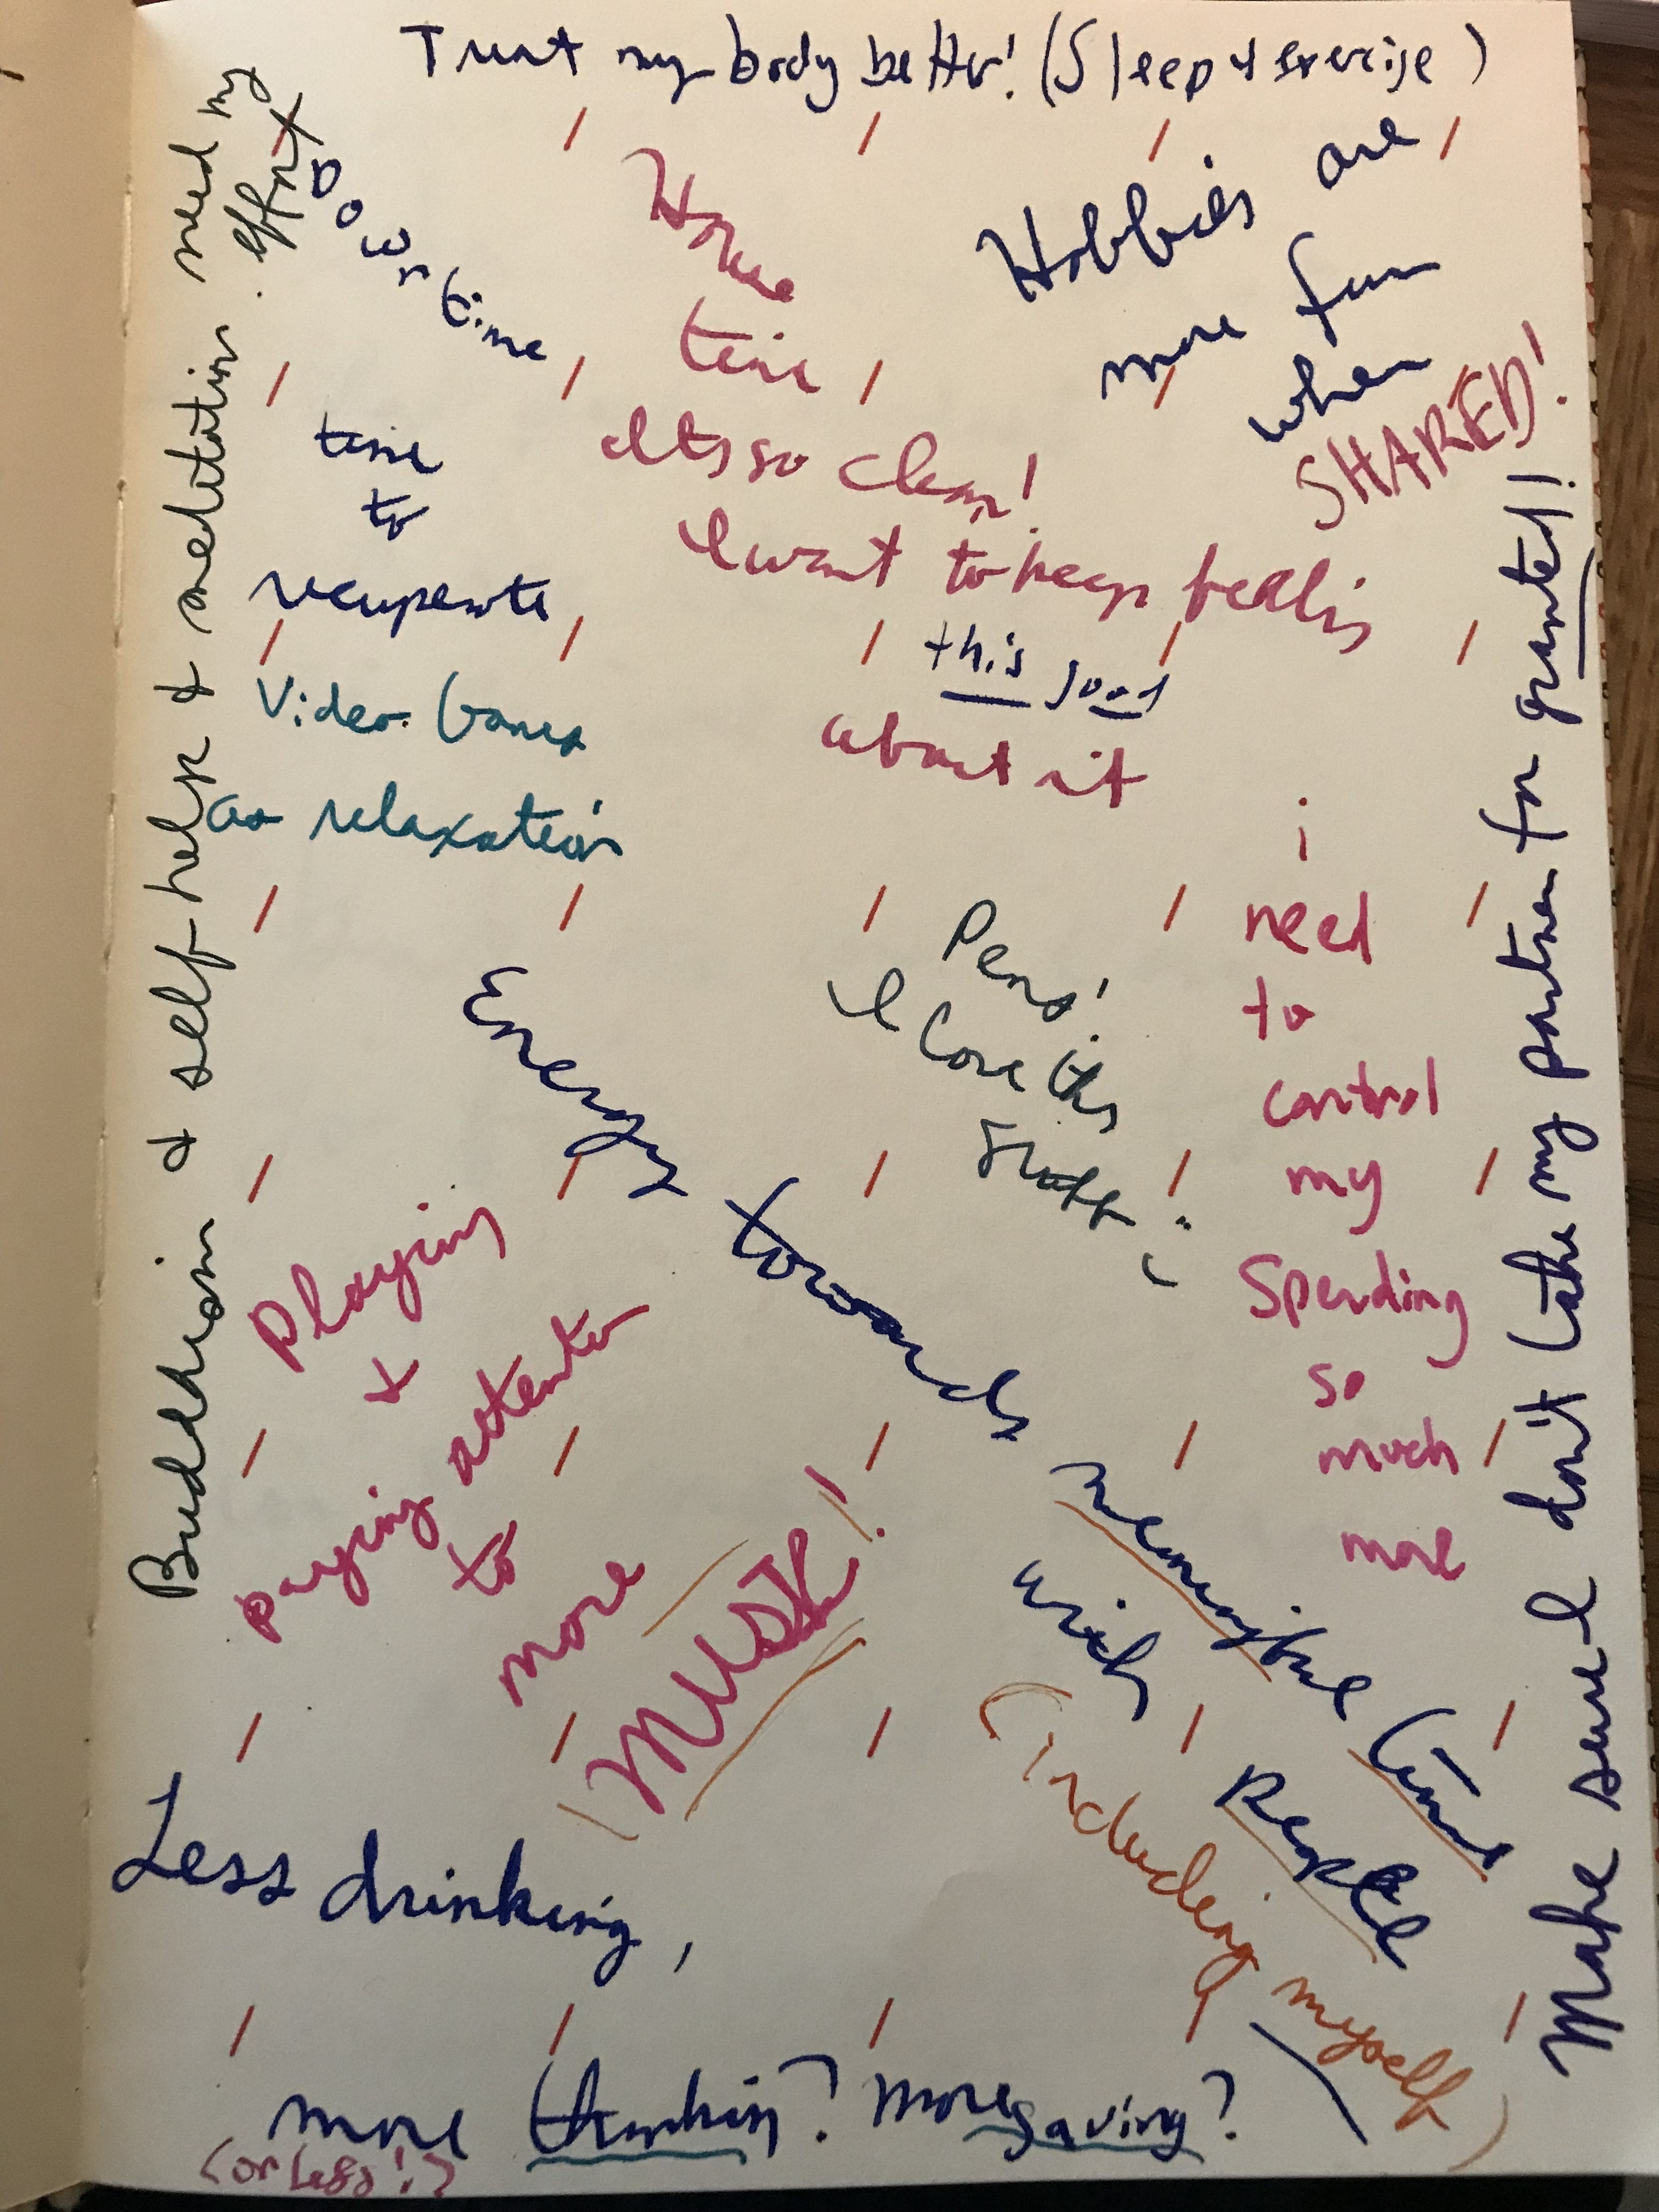 Treat my body better! (Sleep & exercise)
Buddhism & self-help & meditation need my
effort
Downtime
time
to
recuperate
Home
time
It's so clean!
I want to keep feeling
this good
about it
Hobbies are
more fun
when
SHARED!
Video Games
as relaxation
Pens!
I love this
stuff :)
i
need
to
control
my
Spending
so
much
more
Make sure I don't take my partner for granted!
Energy towards meaningful time
with People
(including myself)
Playing
&
paying attention
to
more
MUSIC!
Less drinking,
more thinking? More saving?
(or less!?)